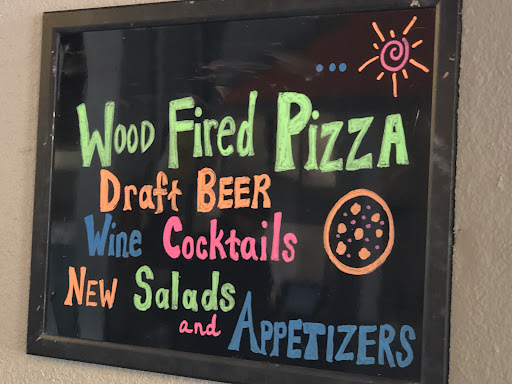 Wood Fired Pizza
Draft BEER
Wine Cocktails
New Salads
and APPETIZERS